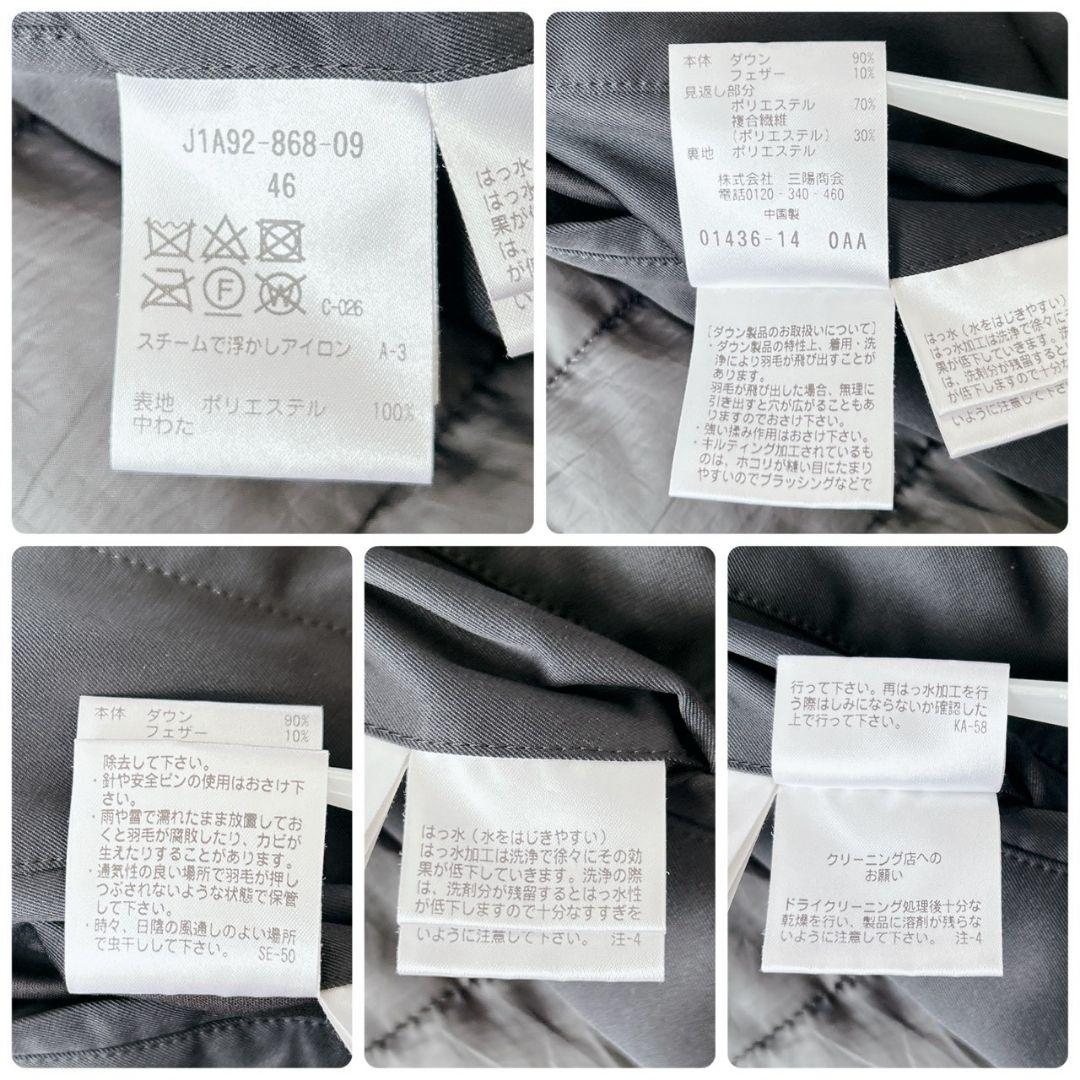 J1A92-868-09
46
F
W
C-026
スチームで浮かしアイロン A-3
表地 ポリエステル 100%
中わた
はっ水
はっ水
果がƒ
は、
が低
本体 ダウン 90%
フェザー 10%
見返し部分
ポリエステル 70%
複合繊維
(ポリエステル) 30%
裏地 ポリエステル
株式会社 三陽商会
電話0120-340-460
中国製
01436-14 0AA
[ダウン製品のお取扱いについて]
・ダウン製品の特性上、着用・洗
浄により羽毛が飛び出すことが
あります。
羽毛が飛び出した場合、無理に
引き出すと穴が広がることもあ
りますのでおさけ下さい。
・強い揉み作用はおさけ下さい。
・キルティング加工されているも
のは、ホコリが縫い目にたまり
やすいのでブラッシングなどで
はっ水(水をはじきやすい)
はっ水加工は洗浄で徐々にその
果が低下していきます。洗浄の
は、洗剤分が残留すると
が低下しますので十分な
いように注意して下さい
本体 ダウン 90%
フェザー 10%
除去して下さい。
・針や安全ピンの使用はおさけ下
さい。
・雨や雪で濡れたまま放置してお
くと羽毛が腐敗したり、カビが
生えたりすることがあります。
・通気性の良い場所で羽毛が押し
つぶされないような状態で保管
して下さい。
・時々、日陰の風通しのよい場所
で虫干しして下さい。 SE-50
はっ水(水をはじきやすい)
はっ水加工は洗浄で徐々にその効
果が低下していきます。洗浄の際
は、洗剤分が残留するとはっ水性
が低下しますので十分なすすぎを
いように注意して下さい。 注-4
行って下さい。再はっ水加工を行
う際はしみにならないか確認した
上で行って下さい。 KA-58
クリーニング店への
お願い
ドライクリーニング処理後十分な
乾燥を行い、製品に溶剤が残らな
いように注意して下さい。 注-4